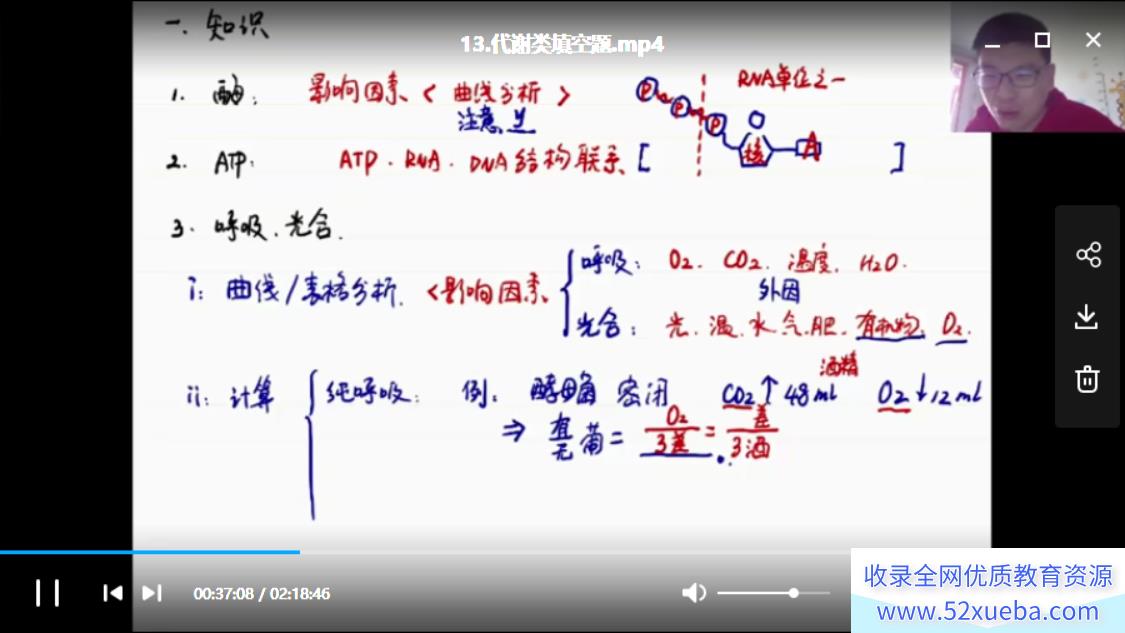 一. 知识
13.代谢类填空题.mp4
1. 酶: 影响因素 < 曲线分析 >
注意
RNA单位之一
P P P O 核 A
2. ATP: ATP. RNA. DNA结构联系 [ ]
3. 呼吸.光合.
i: 曲线/表格分析. <影响因素
呼吸: O2. CO2. 温度. H2O.
外因
光合: 光.温.水.气.肥.有机物. O2.
ii: 计算
纯呼吸: 例: 酵母菌 密闭 CO2↑48ml O2↓12ml
酒精
⇒ 有/无 葡 = O2/3差 = 差/3酒
00:37:08 / 02:18:46
收录全网优质教育资源
www.52xueba.com